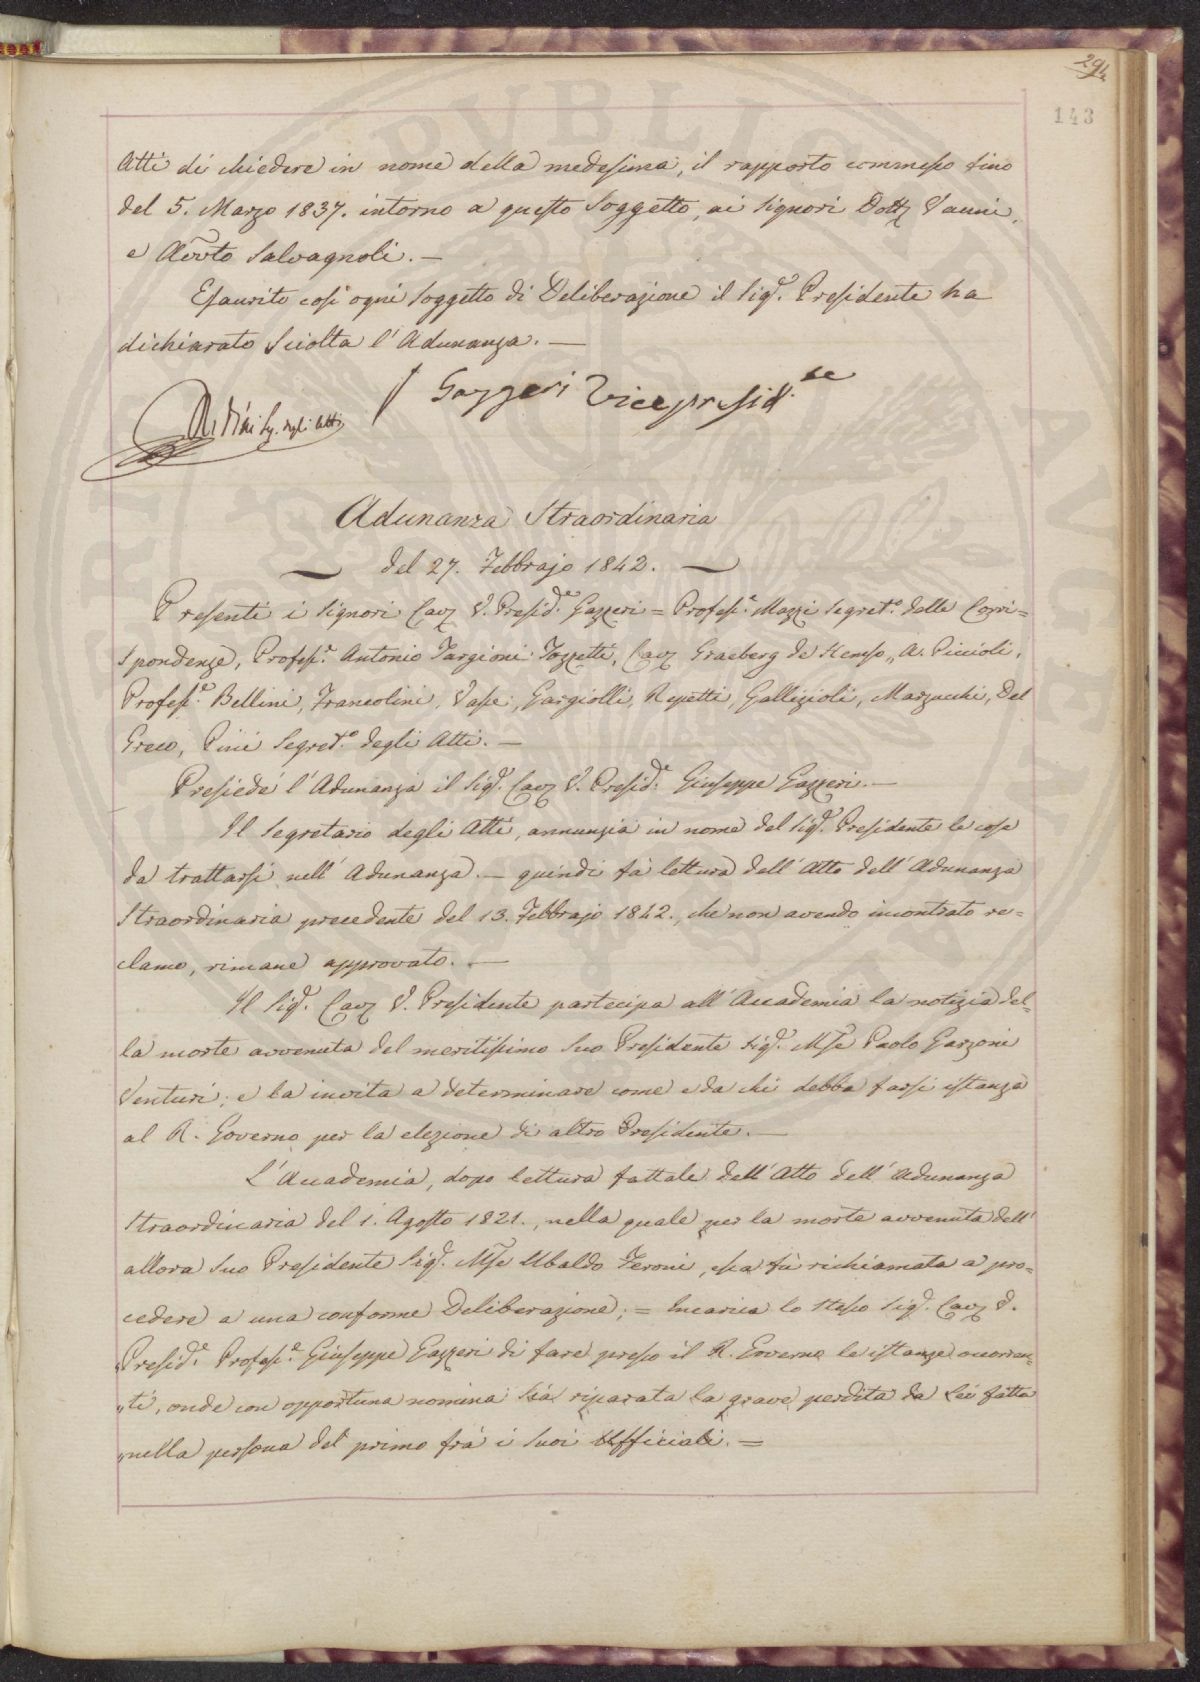 294
143
Atti di chiedere in nome della medesima, il rapporto commesso fino
del 5. Marzo 1837. intorno a questo Soggetto, ai Signori Dott. Vanni,
e Avṽto Salvagnoli. —
Esaurito così ogni Soggetto di Deliberazione il Sig.r Presidente ha
dichiarato Sciolta l'Adunanza. —
Gazzeri Vicepresid.te
Seg. degli Atti
Adunanza Straordinaria
— del 27. Febbrajo 1842. —
Presenti i Signori Cav. V. Presid.e Gazzeri = Profess.e Mazzi Segret.o delle Corri=
spondenze, Profess.e Antonio Targioni Tozzetti, Cav. Graeberg de Hemso, A. Piccioli,
Profess.e Bellini, Francolini, Gargiolli, Repetti, Gallizioli, Marzucchi, Del
Greco, Pini Segret.o degli Atti. —
Presiedé l'Adunanza il Sig.r Cav. V. Presid.e Giuseppe Gazzeri. —
Il Segretario degli Atti, annunzia in nome del Sig.r Presidente le cose
da trattarsi nell'Adunanza. — quindi fà lettura dell'Atto dell'Adunanza
Straordinaria precedente del 13. Febbrajo 1842., che non avendo incontrato re=
clamo, rimane approvato. —
Il Sig.r Cav. V. Presidente partecipa all'Accademia la notizia del=
la morte avvenuta del meritissimo Suo Presidente Sig.r Mse Paolo Garzoni
Venturi; e la invita a determinare come e da chi debba farsi istanza
al R. Governo per la elezione di altro Presidente. —
L'Accademia, dopo lettura fattale dell'Atto dell'Adunanza
Straordinaria del 1. Agosto 1821., nella quale per la morte avvenuta dell'
allora Suo Presidente Sig.r Mse Ubaldo Feroni, essa fù richiamata a pro=
cedere a una conforme Deliberazione; = Incarica lo stesso Sig.r Cav. V.
„Presid.e Profess.e Giuseppe Gazzeri di fare presso il R. Governo le istanze occorren=
„ti, onde con opportuna nomina Sia riparata la grave perdita da Lei fatta
„nella persona del primo frà i Suoi Ufficiali. =